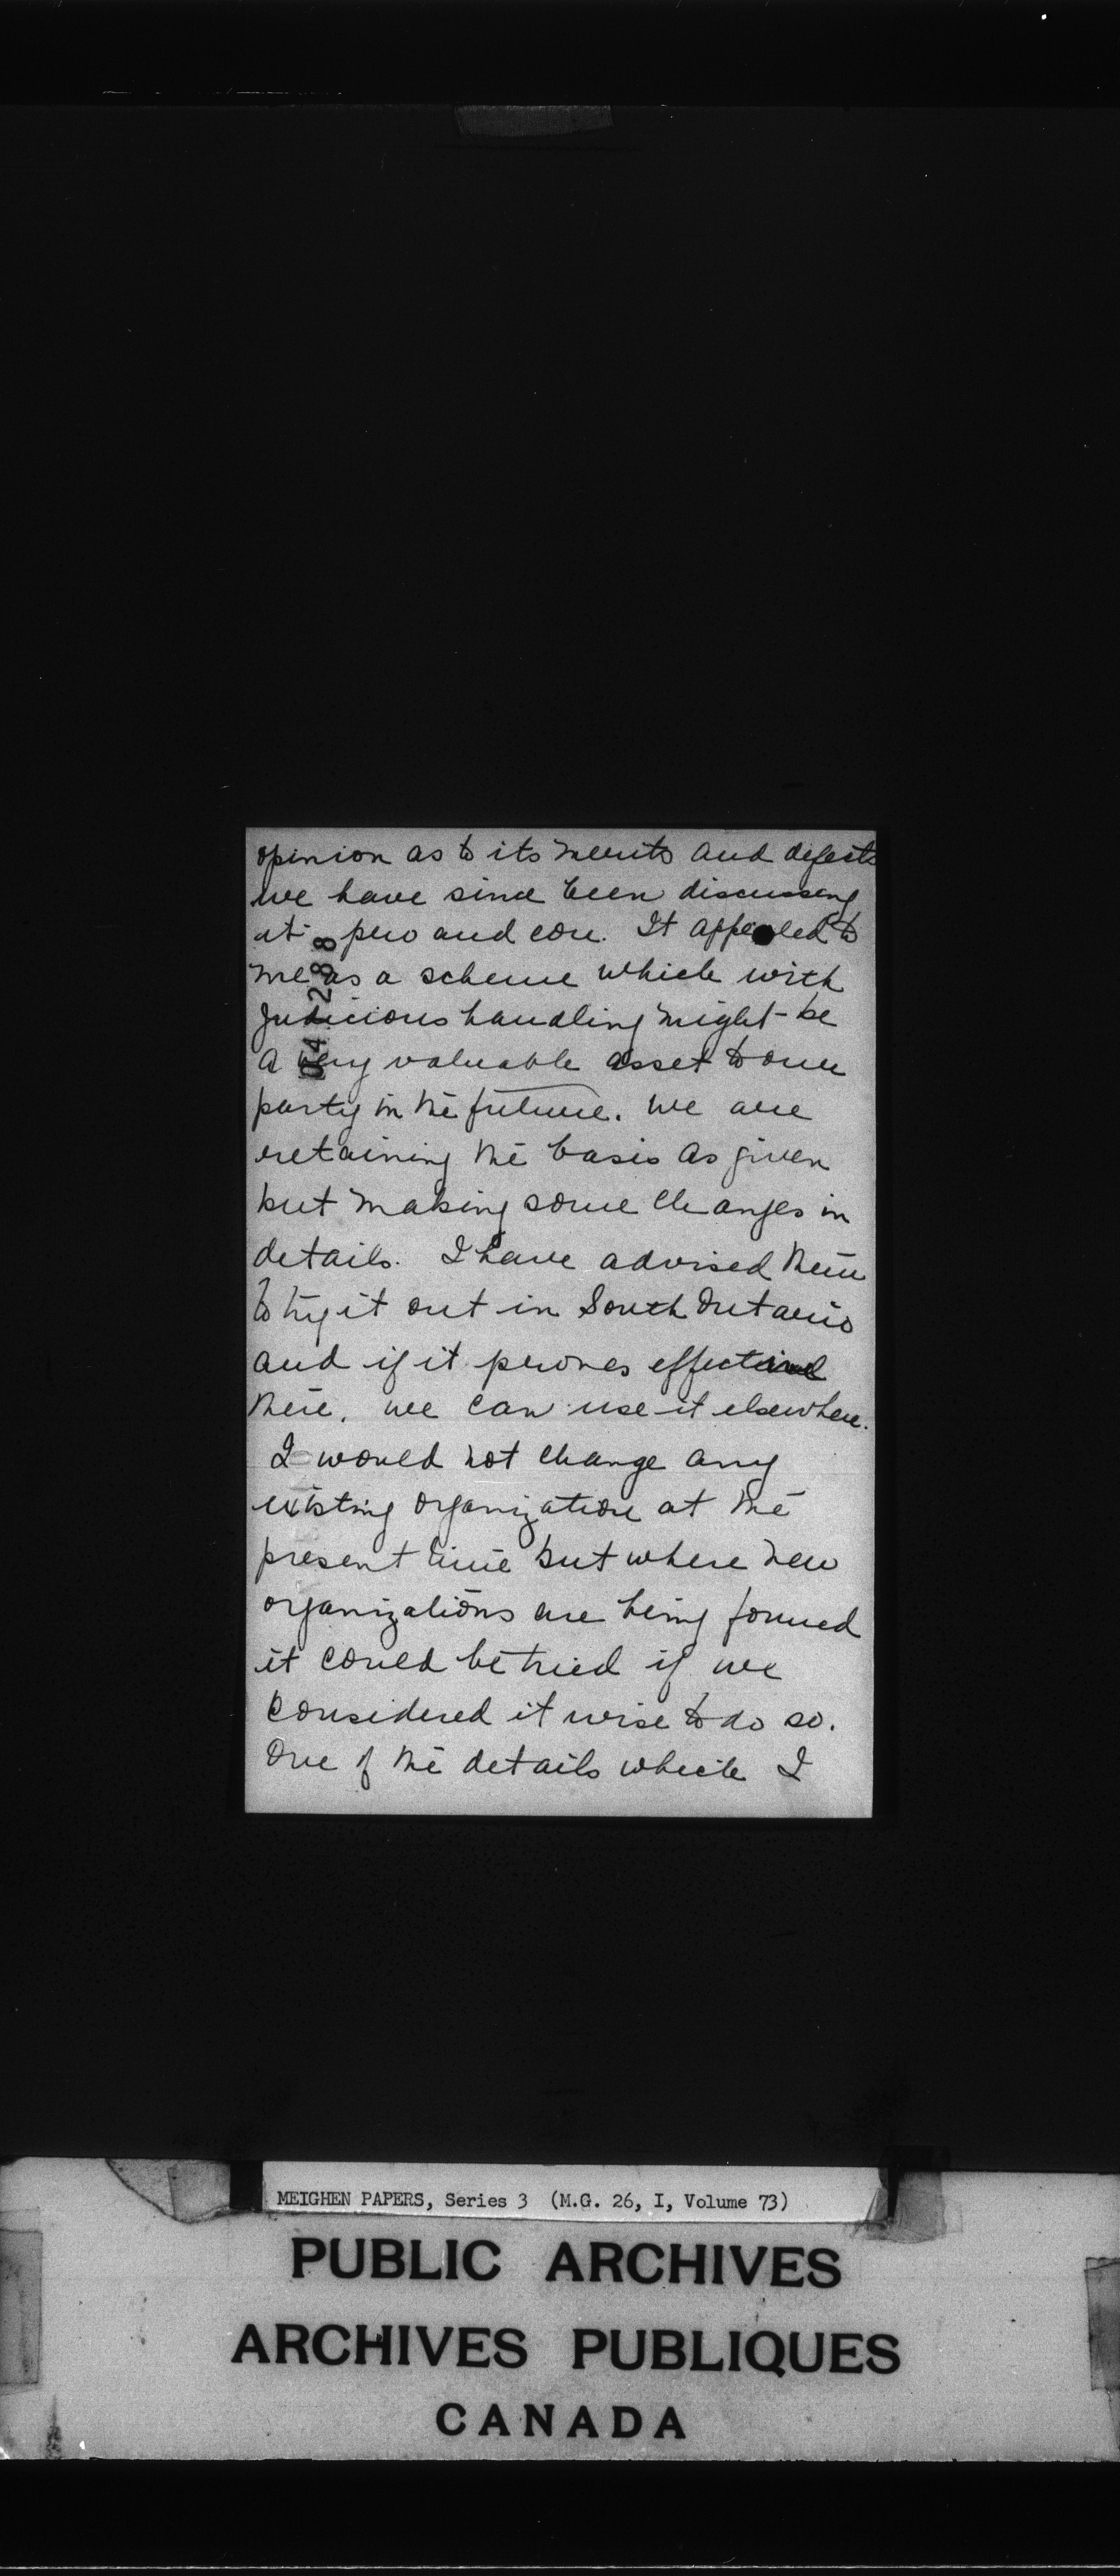 opinion as to its merits and defects
we have since been discussing
it pro and con. It appealed to
me as a scheme which with
judicious handling might be
a very valuable asset to our
party in the future. We are
retaining the basis as given
but making some changes in
details. I have advised them
to try it out in South Ontario
and if it proves effectual
there, we can use it elsewhere.
I would not change any
existing organization at the
present time but where new
organizations are being formed
it could be tried if we
considered it wise to do so.
One of the details which I
MEIGHEN PAPERS, Series 3 (M.G. 26, I, Volume 73)
PUBLIC ARCHIVES
ARCHIVES PUBLIQUES
CANADA